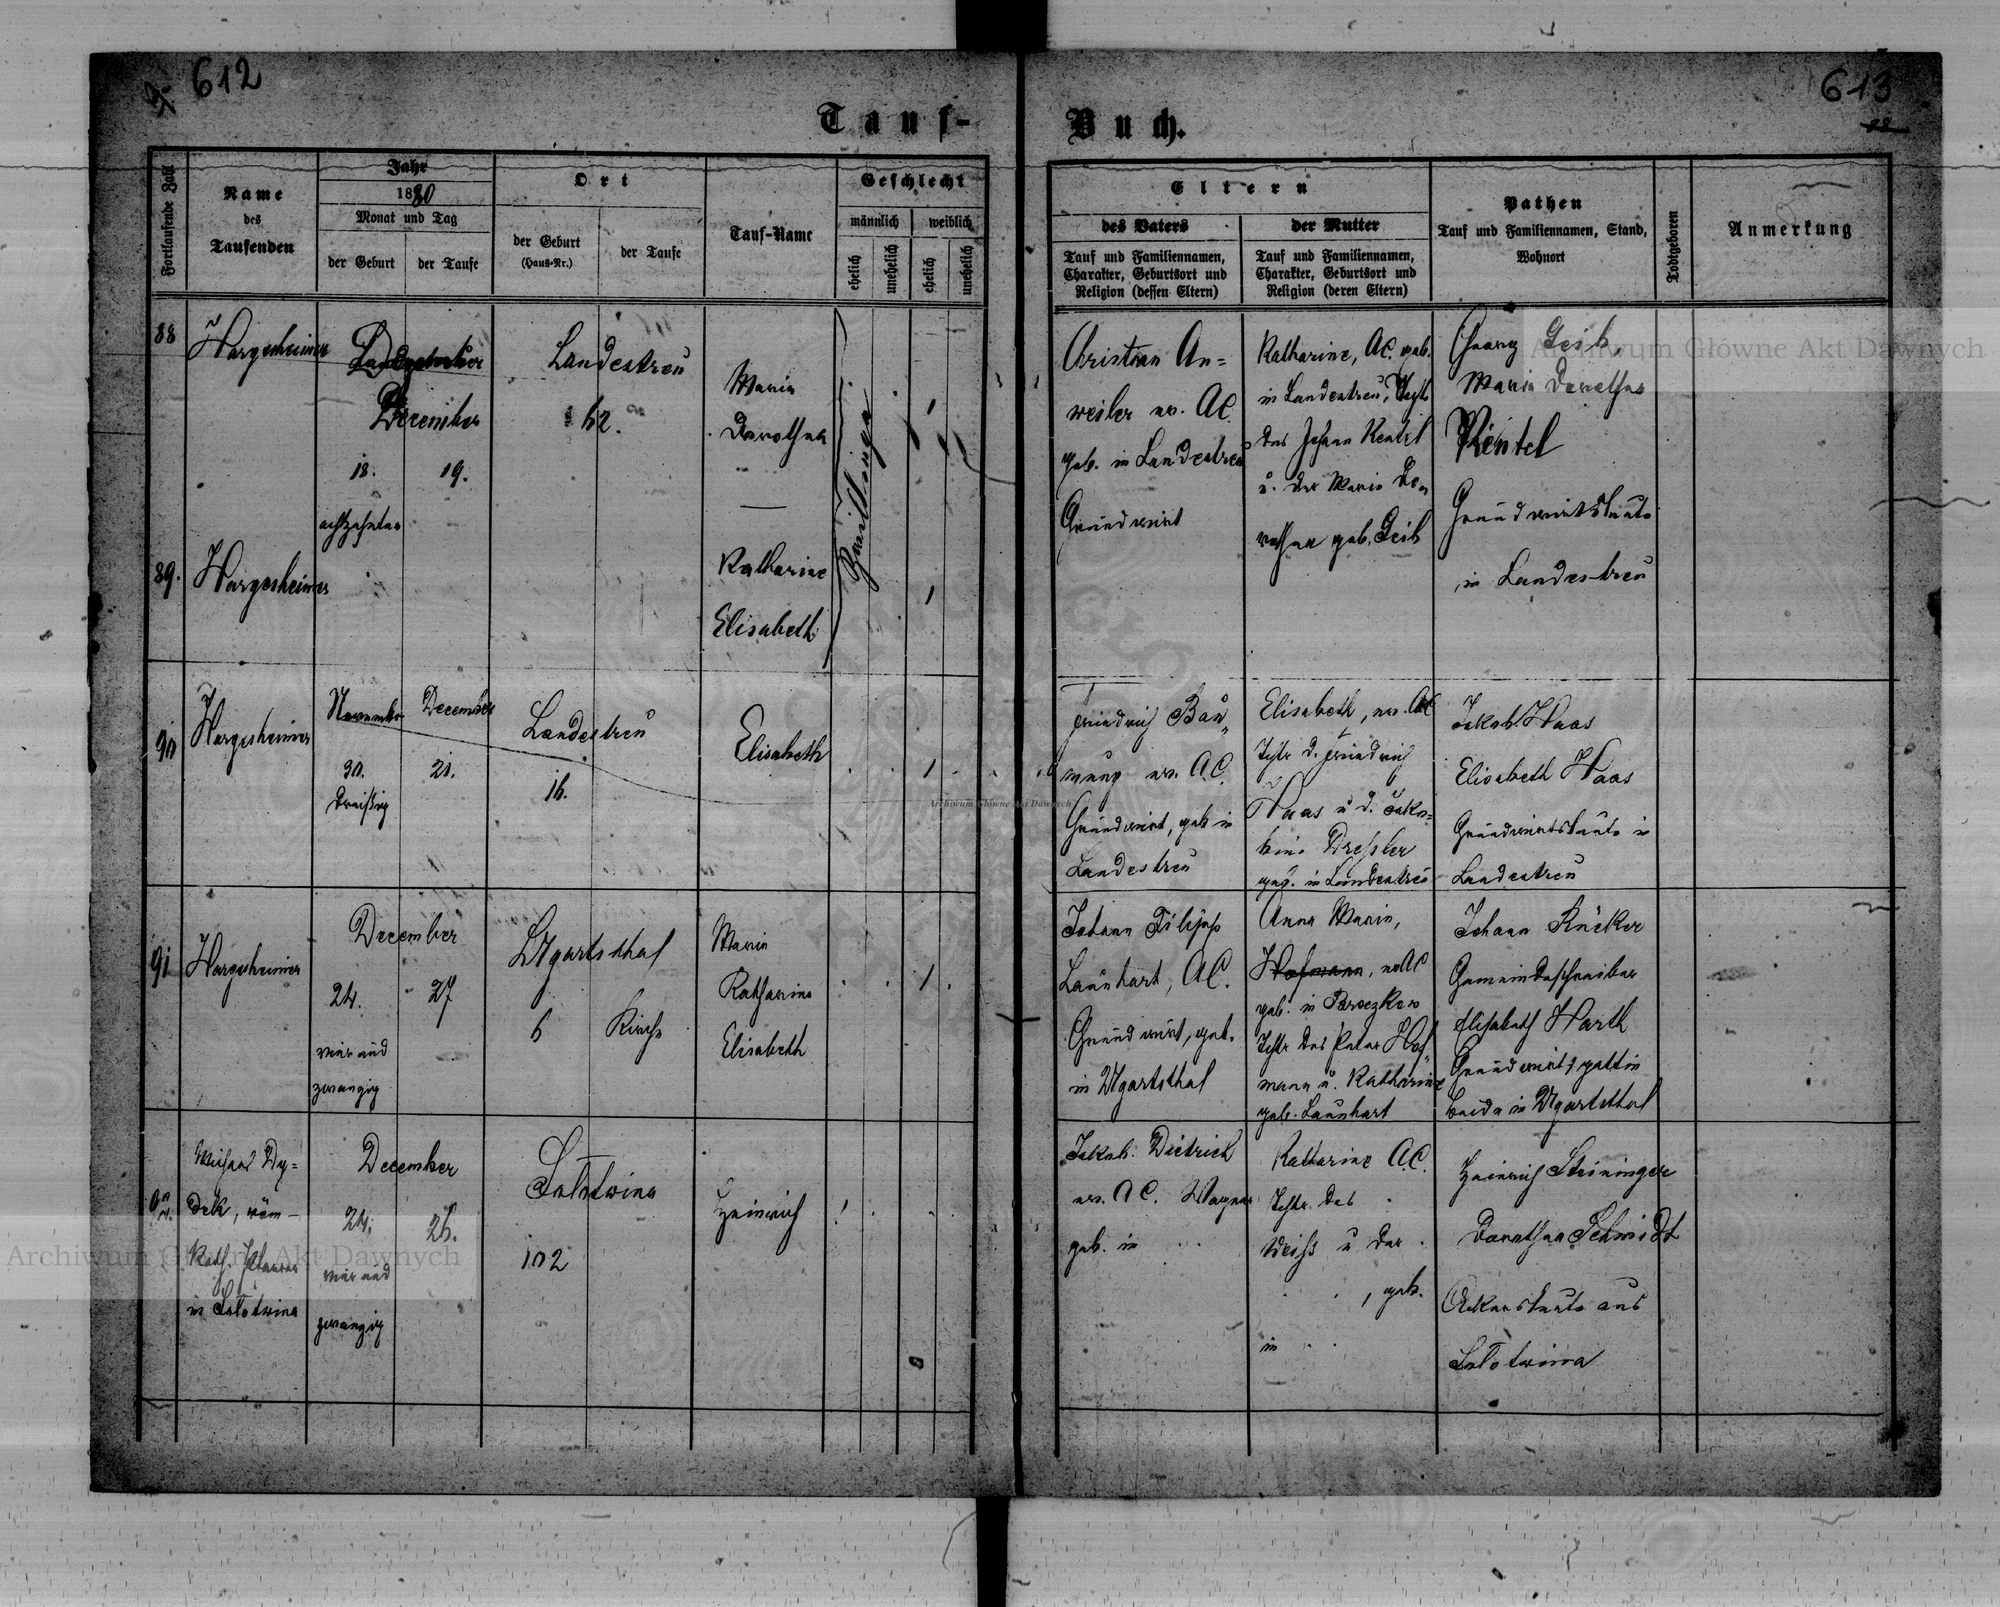 612
613
Tauf-
Buch.
Fortlaufende Zahl
Name
des
Taufenden
Jahr
1880
Monat und Tag
der Geburt
der Taufe
Ort
der Geburt
(Haus-Nr.)
der Taufe
Tauf-Name
Geschlecht
männlich
weiblich
ehelich
unehelich
ehelich
unehelich
Eltern
des Vaters
Tauf und Familiennamen,
Charakter, Geburtsort und
Religion (dessen Eltern)
der Mutter
Tauf und Familiennamen,
Charakter, Geburtsort und
Religion (deren Eltern)
Pathen
Tauf und Familiennamen, Stand,
Wohnort
Todtgeboren
Anmerkung
88
Hargesheimer
December
18.
19.
achtzehnter
Landestreu
62.
Maria
Dorothea
Zwillinge
Christian An=
weiler ev. AC
geb. in Landestreu
Grundwirt
Katharine, AC. geb.
in Landestreu, Tcht.
des Johann Rentel
u. der Maria Do-
rothea geb. Geib
Georg Geib,
Maria Dorothea
Rentel
Grundwirtsleute
in Landestreu
89.
Hargesheimer
Katharine
Elisabeth
90
Hargesheimer
November
December
30.
21.
dreißig
Landestreu
16.
Elisabeth
Friedrich Bau-
mung ev. A.C.
Grundwirt, geb in
Landestreu
Elisabeth, ev. AC
Tchtr d. Friedrich
Haas u d. Jako=
bine Dressler
geb. in Landestreu
Jakob Haas
Elisabeth Haas
Grundwirtsleute in
Landestreu
91
Hargesheimer
December
24.
27
vier und
zwanzig
Ugartsthal
6
Kirche
Maria
Katharine
Elisabeth
Johann Filipp
Launhart, AC.
Grundwirt, geb.
in Ugartsthal
Anna Maria,
Hofmann, ev AC
geb. in
Tchtr des Peter Hof-
mann u. Katharine
geb. Launhart
Johann Rücker
Gemeindeschreiber
Elisabeth Harth
Grundwirtsgattin
beide in Ugartsthal
92.
Michael Dy=
dek, röm-
kath. Pfarrer
in Sołotwina
December
24.
26.
vier und
zwanzig
Sołotwina
102
Heinrich
Jakob Dietrich
ev. AC. Wagner
geb. in
Katharine A.C.
Tchtr. des
Weiss u der
, geb.
in
Heinrich Steininger
Dorothea Schmidt
Ackersleute aus
Sołotwina
Archiwum Główne Akt Dawnych
Archiwum Główne Akt Dawnych
Archiwum Główne Akt Dawnych